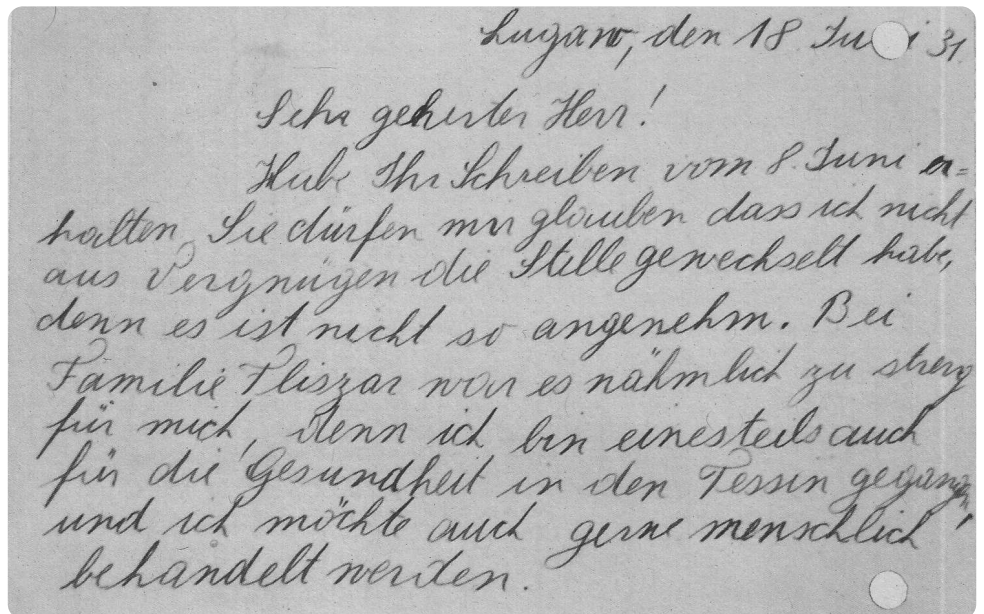 Lugano, den 18. Juni 31.
Sehr geehrter Herr!
Habe Ihr Schreiben vom 8. Juni er=
halten, Sie dürfen mir glauben dass ich nicht
aus Vergnügen die Stelle gewechselt habe,
denn es ist nicht so angenehm. Bei
Familie Fliszar war es nähmlich zu streng
für mich, denn ich bin einesteils auch
für die Gesundheit in den Tessin gegangen,
und ich möchte auch gerne menschlich
behandelt werden.